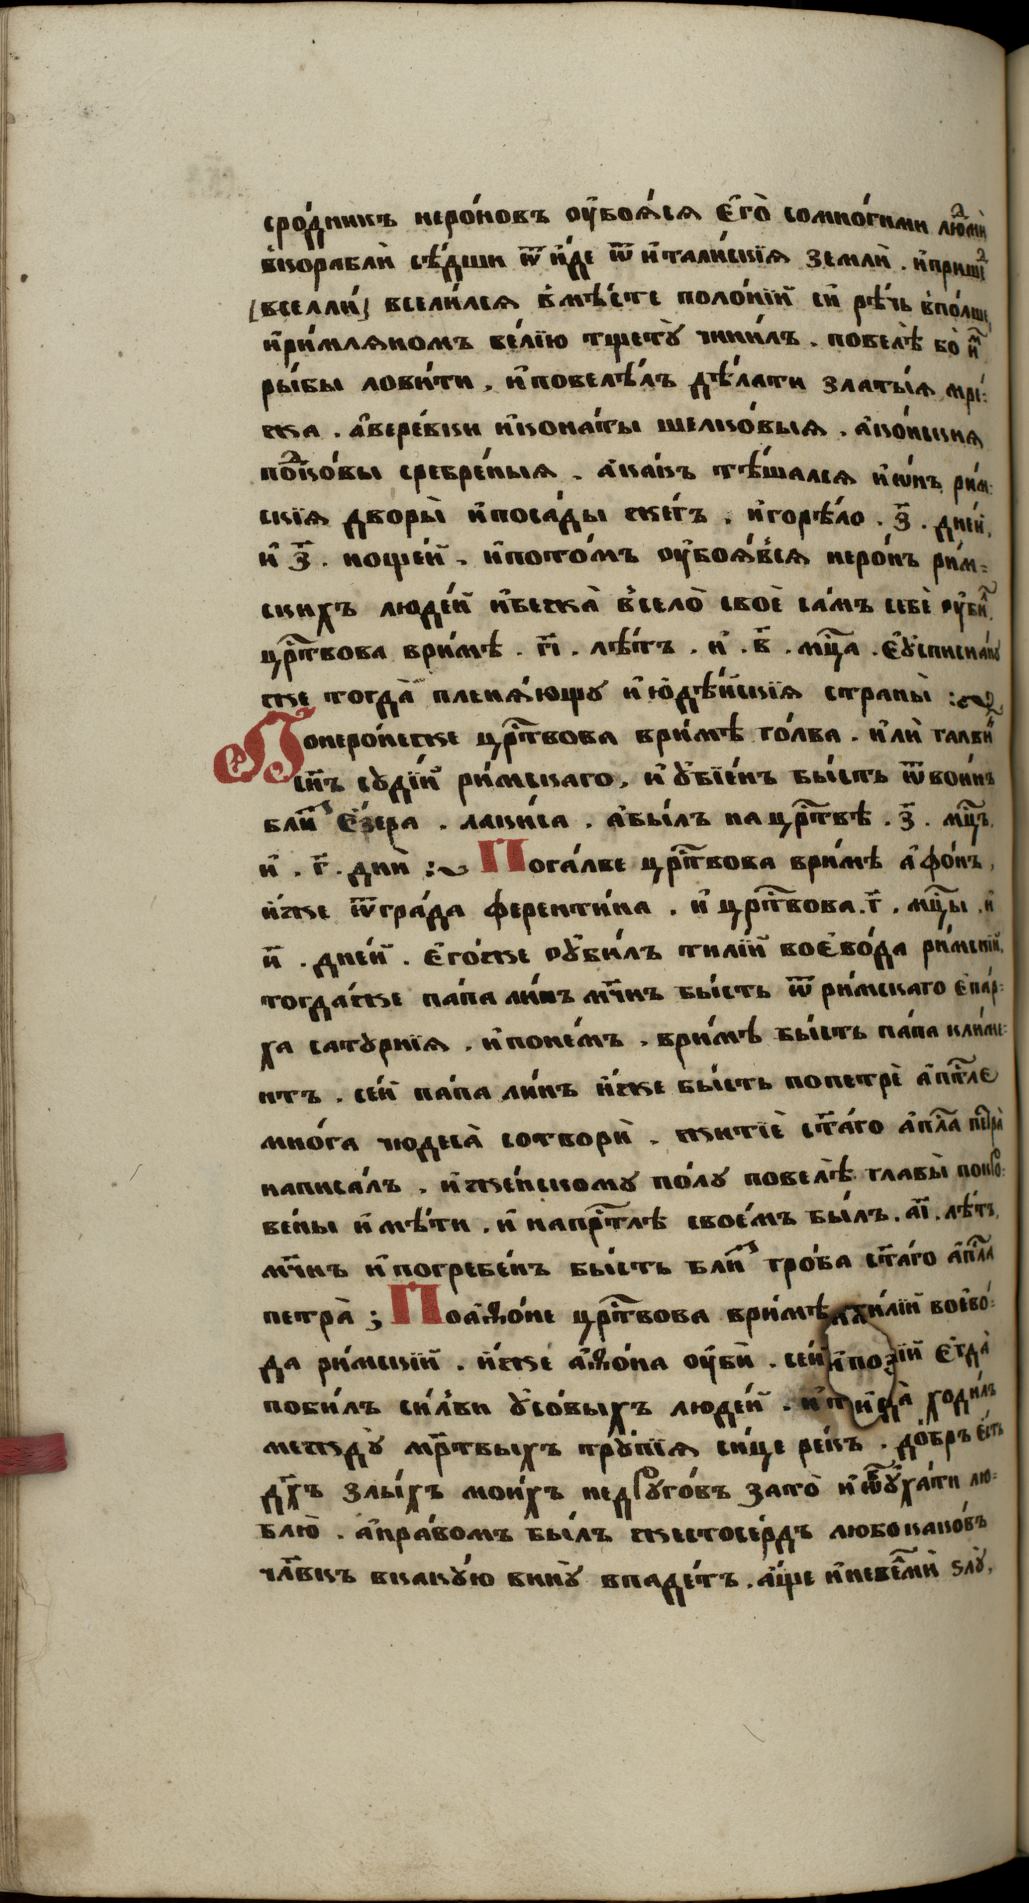 сро́дникъ неро́новъ ᲂу҆боѧ́сѧ є҆го̀ сомно́гими лю́дми
вкораблѝ сѣ́дши ѿи́де ѿ и҆тали́скїѧ землѝ . и҆прише
[вселли́] всели́лсѧ вмѣ́сте поло́нїи сирѣ́чь впо́лше
и҆ри́млѧномъ ве́лїю тщетꙋ̀ чини́лъ . повелѣ̀ бо и҆
ры́бы лови́ти , и҆повелѣ́лъ дѣ́лати златы́ѧ мрѣ́:
жа . а҆вере́вки и҆кона́ты шелко́выѧ . а҆ко́нскиѧ
по́дко́вы сребре́ныѧ . а҆ка́къ тѣ́шалсѧ и҆ѡ́нъ рим:
скїѧ дворы̀ и҆поса́ды же́гъ . и҆горѣ́ло . з҃ . дне́й,
и҆ з҃ . ноще́й . и҆пото́мъ ᲂу҆боѧ́всѧ неро́нъ ри́м=
скихъ люде́й и҆бежа̀ всело̀ своѐ са́мъ себѐ ᲂу҆би
црⷭ҇твова в ри́мѣ . гі҃ . лѣ́тъ . и҆ . в҃ . мцⷭ҇а . є҆ѵспесиа́нꙋ
же тогда̀ пленѧ́ющꙋ и҆ю҆дѣ́йскїѧ страны̀ :~
Поне́ронеже црⷭ҇твова в ри́мѣ го́лва . и҆лѝ галви́
сн҃ъ сꙋдїѝ ри́мскаго, и҆ ᲂу҆бїе́нъ бы́сть ѿ во́инъ
бли́з є҆́зера . лакиса . а҆бы́лъ на црⷭ҇твѣ . з҃ . мцⷭ҇ъ
и҆ . г҃ . дни̑ :~ Пога́лве црⷭ҇твова в ри́мѣ а҆фо́нъ ,
и҆́же ѿ гра́да ферентина . и҆ црⷭ҇твова . г҃ . мцⷭ҇ы . и҆
и҃ . дне́й . є҆го́же ᲂу҆би́лъ тилі́й воево́да ри́мскїй,
тогда́же па́па ли́нъ мч҃нъ бы́сть ѿ ри́мскаго є҆па́р:
ха сатꙋрнїѧ . и҆поне́мъ . в ри́мѣ бы́сть па́па климе:
нтъ . се́й па́па ли́нъ и҆́же бы́сть попетрѐ а҆пⷭ҇тле
мно́га чюдеса̀ сотвори̑ . житїѐ ст҃а́го а҆пⷭ҇ла петра̀
написа́лъ . и҆же́нскомꙋ по́лꙋ повелѣ̀ главы̀ покро:
ве́ны и҆мѣ́ти . и҆ напрⷭ҇тлѣ свое́мъ бы́лъ . аі҃ . лѣ́тъ,
мч҃нъ и҆погребе́нъ бы́сть бли́з гро́ба ст҃а́го а҆пⷭ҇ла
петра̀ ; Поа҆ѳо́не црⷭ҇твова в ри́мѣ тилїй воево́:
да ри́мскїй . и҆́же а҆ѳо́на ᲂу҆би̑ . се́й и҆позїй є҆гда̀
поби́лъ си́лви ᲂу҆совыхъ люде́й . и҆ тогда̀ ходи́лъ
междꙋ̀ мр҃твыхъ трꙋ́пїѧ си́це ре́къ . до́бръ є҆́сть
дꙋ́хъ злы́хъ мои́хъ недрꙋго́въ зато̀ и҆ѿꙋха́ти лю=
блю̀ . а҆нра́вомъ бы́лъ жестосе́рдъ любо како́въ
чл҃вкъ в какꙋ́ю винꙋ̀ впаде́тъ . а҆́ще и҆невѐлми ѕлꙋ̀,